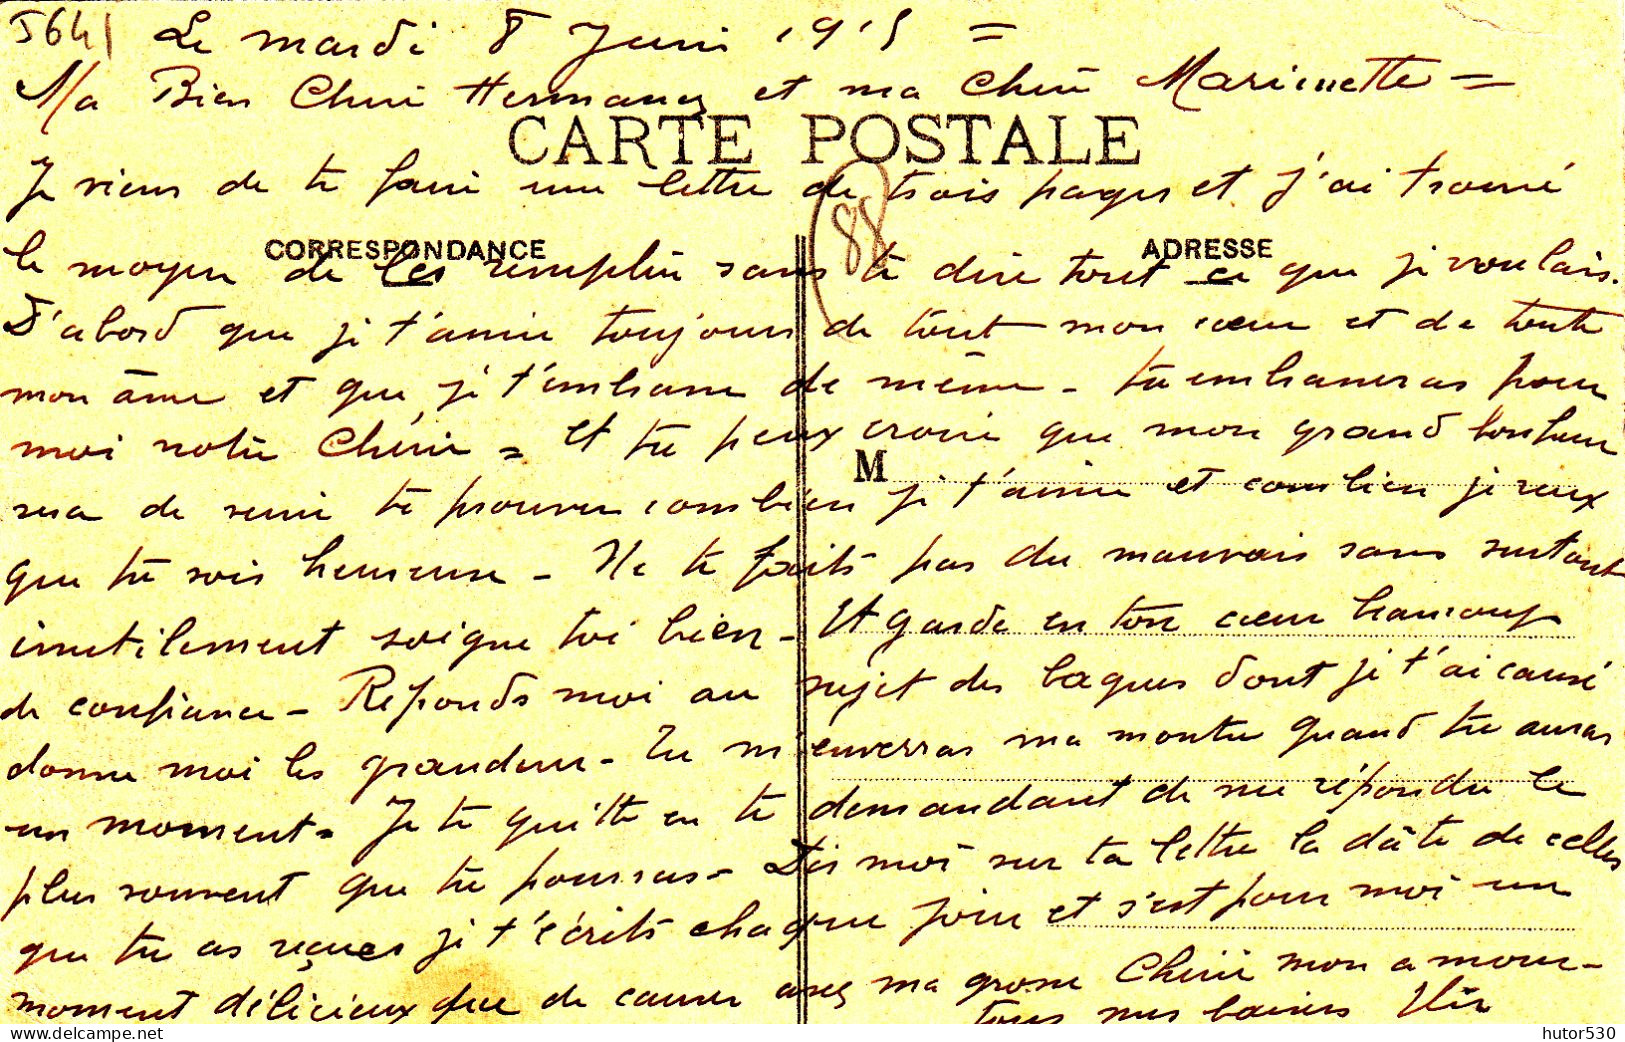 5641 Le mardi 8 Juin 1915 =
Ma Bien Cheri Hermance et ma Cherie Marinette =
CARTE POSTALE
Je viens de te faire une lettre de trois pages et j'ai trouvé
88
CORRESPONDANCE ADRESSE
le moyen de les remplir sans te dire tout ce que je voulais.
D'abord que je t'aime toujours de tout mon cœur et de toute
mon âme et que je t'embrasse de même - tu embrasseras pour
moi notre Chérie = Et tu peux croire que mon grand bonheur
M
sera de venir te prouver combien je t'aime et combien je veux
que tu sois heureuse - Ne te faits pas du mauvais sans surtout
inutilement soigne toi bien - Et garde en ton cœur beaucoup
de confiance - Réponds moi au sujet des bagues dont je t'ai causé
donne moi les grandeur - Tu m'enverras ma montre quand tu auras
un moment = Je te quitte en te demandant de me répondre le
plus souvent que tu pourras - Dis moi sur ta lettre la dâte de celles
que tu as reçues je t'écrits chaque jour et s'est pour moi un
moment délicieux que de causer avec ma grosse Cherie mon amour -
tous mes baisers
delcampe.net hutor530